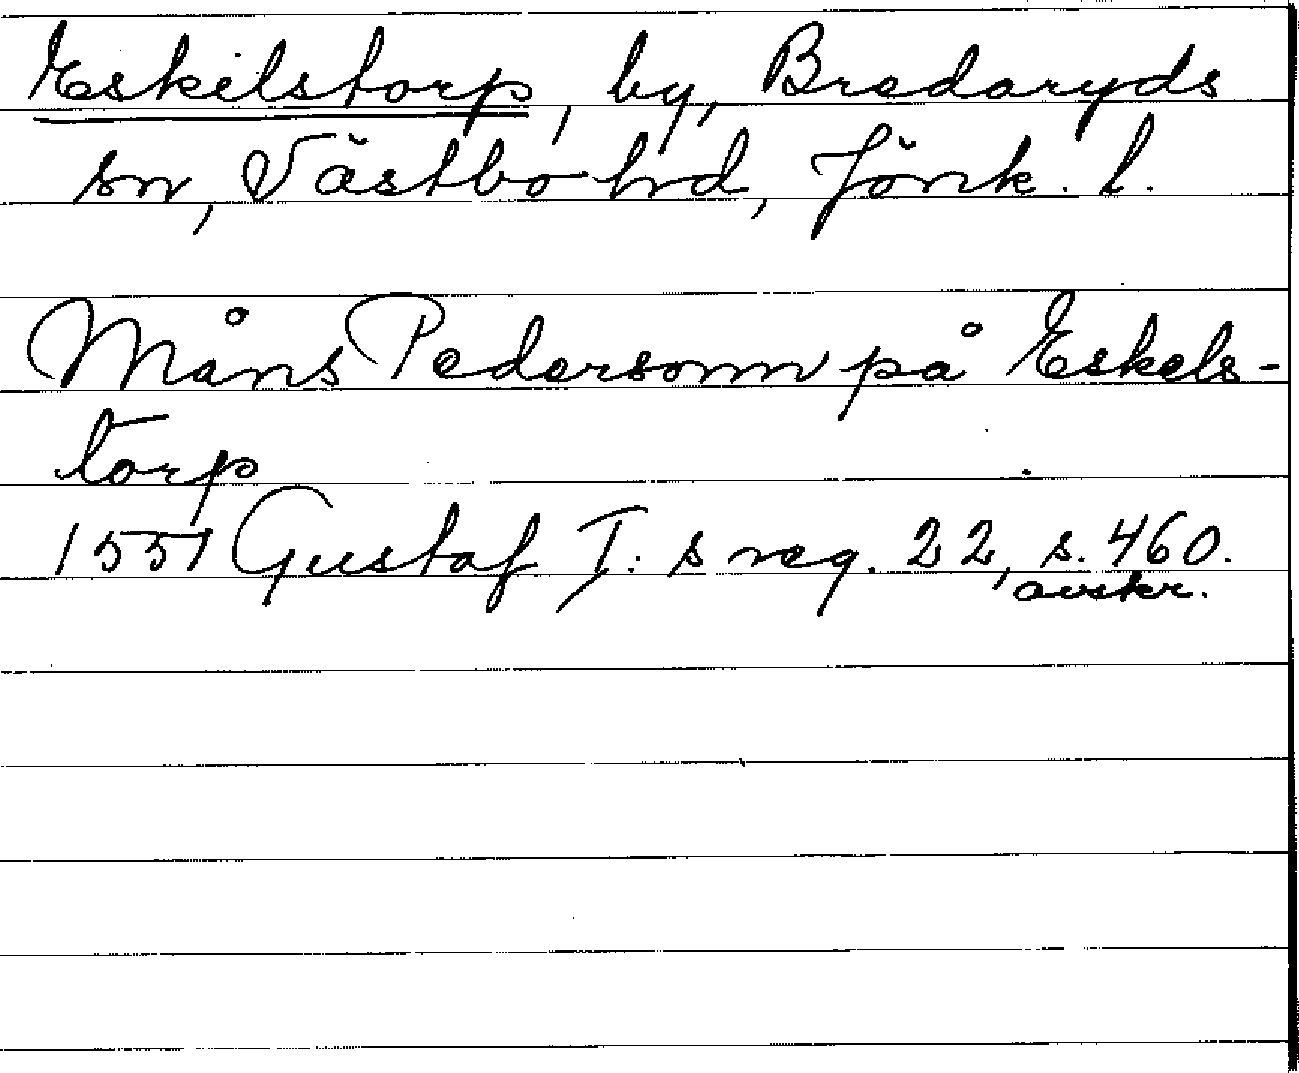 Eskilstorp, by, Bredaryds
sn, Västbo hd, Jönk. l.
Måns Pedersonn på Eskels-
torp
1551 Gustaf I: s reg. 22, s. 460.
avskr.